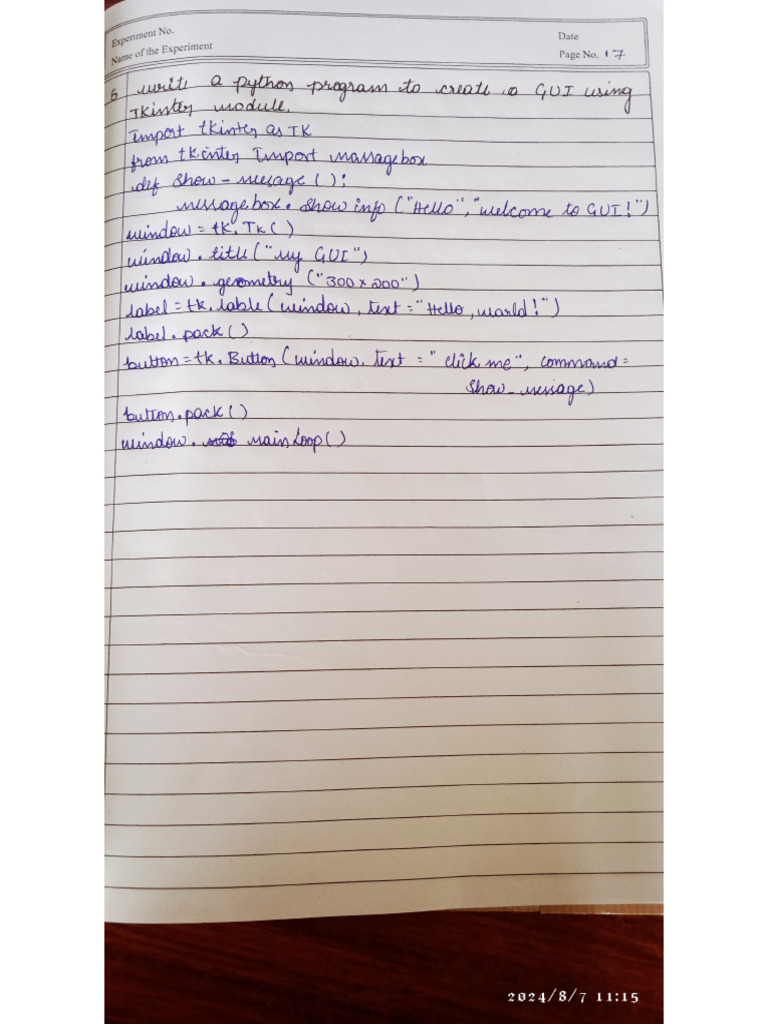 Experiment No.
Date
Name of the Experiment
Page No. 17
6 write a python program to create a GUI using
TKinter module.
Import tkinter as TK
from tkinter Import massagebox
def Show-message():
messagebox.showinfo("Hello","welcome to GUI!")
window = tk.Tk()
window.title("my GUI")
window.geometry ("300x200")
label = tk.lable(window, text = "Hello, world!")
label.pack()
button = tk.Button(window. text = "click me", command =
show-message)
button.pack()
window. mainLoop()
2024/8/7 11:15